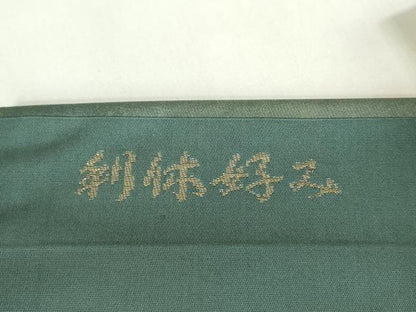 利休好み